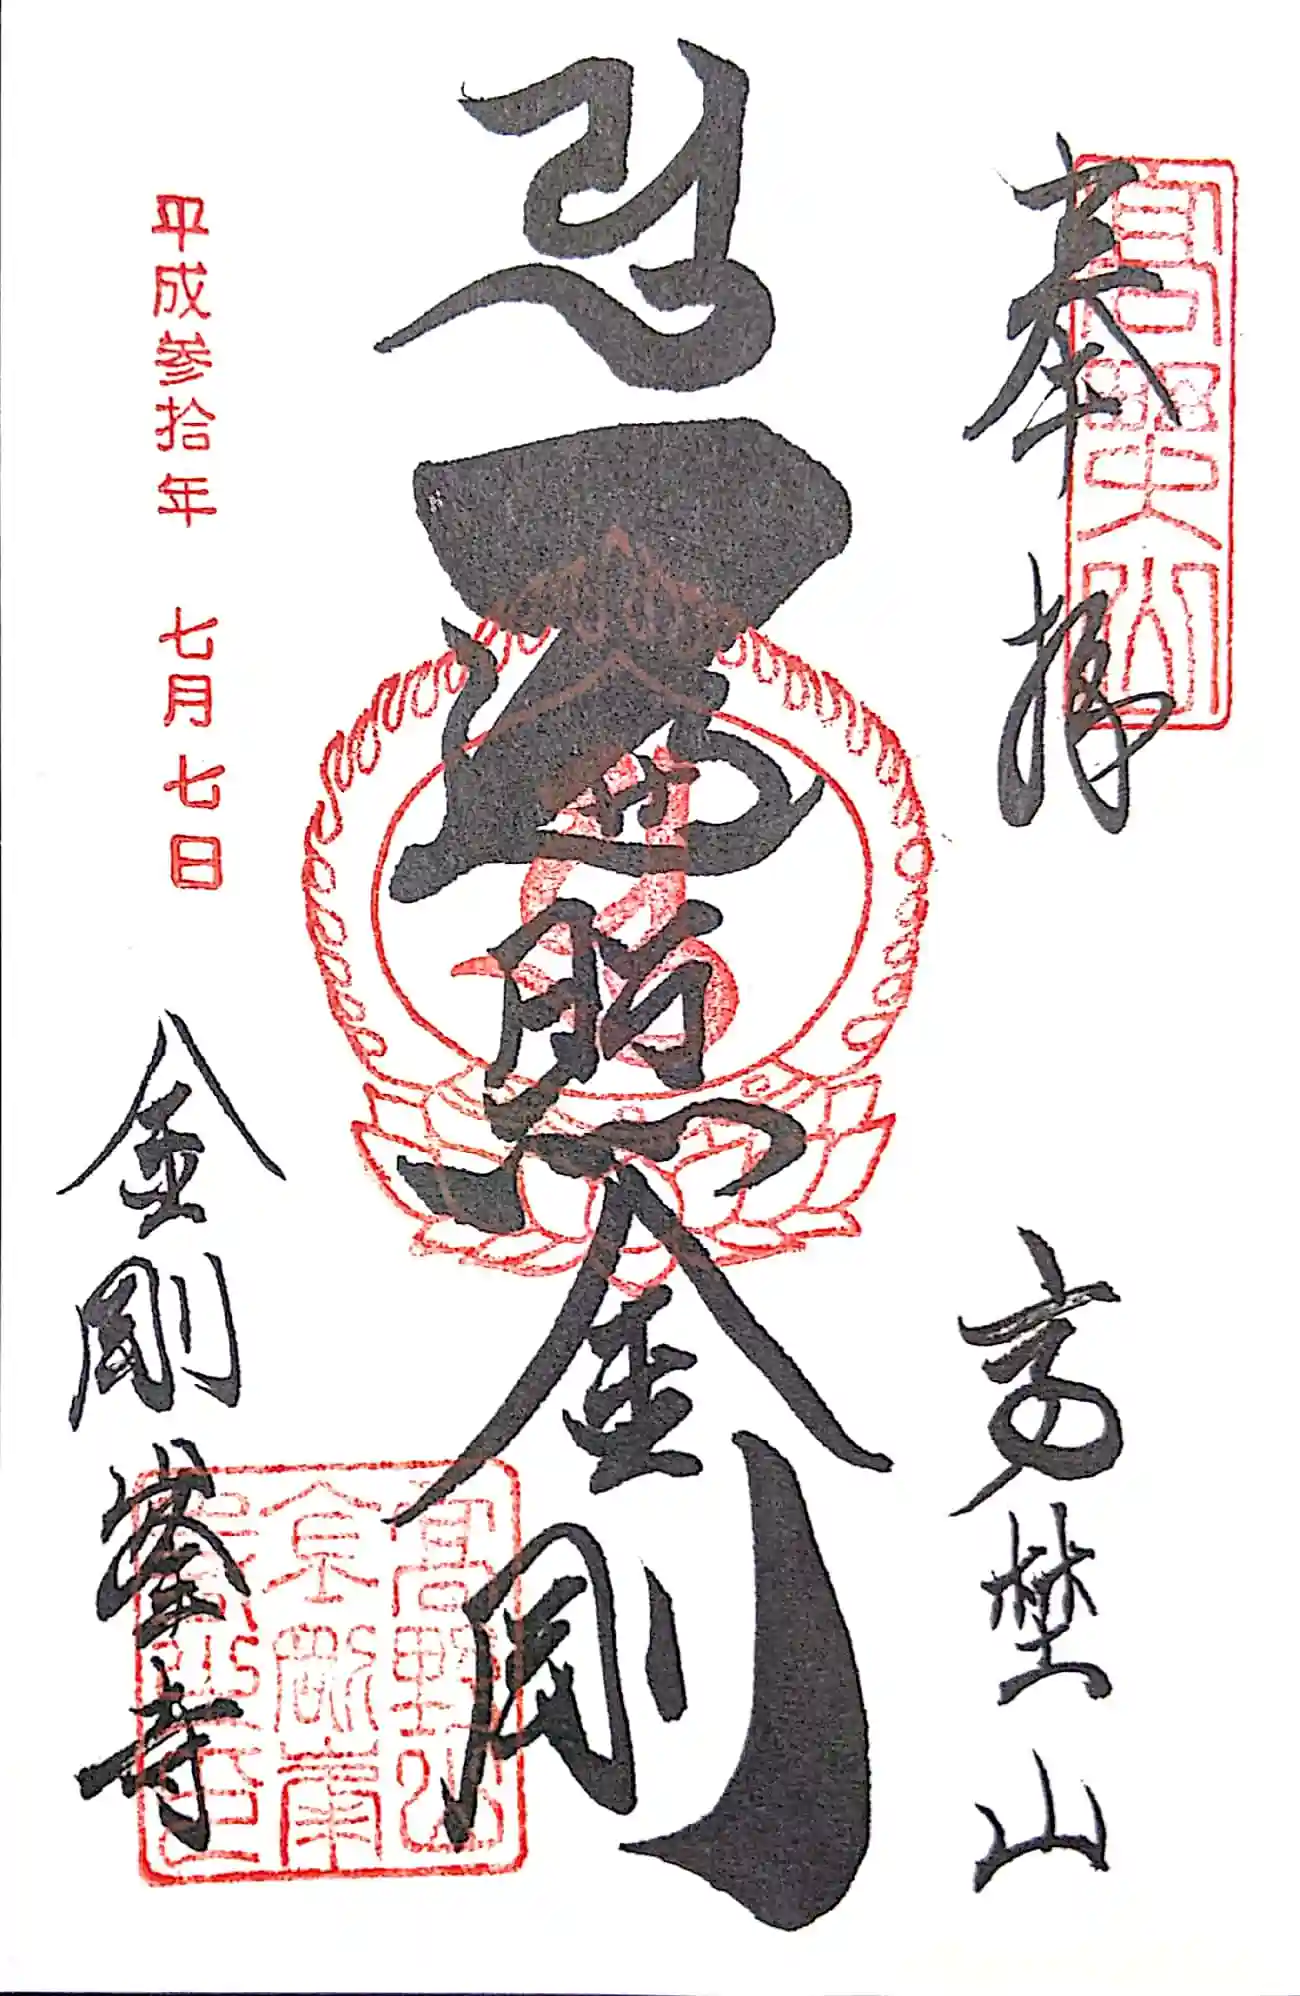 奉拝 高埜山
高野山
遍照金剛
平成参拾年 七月七日
金剛峯寺
高野山
金剛峯